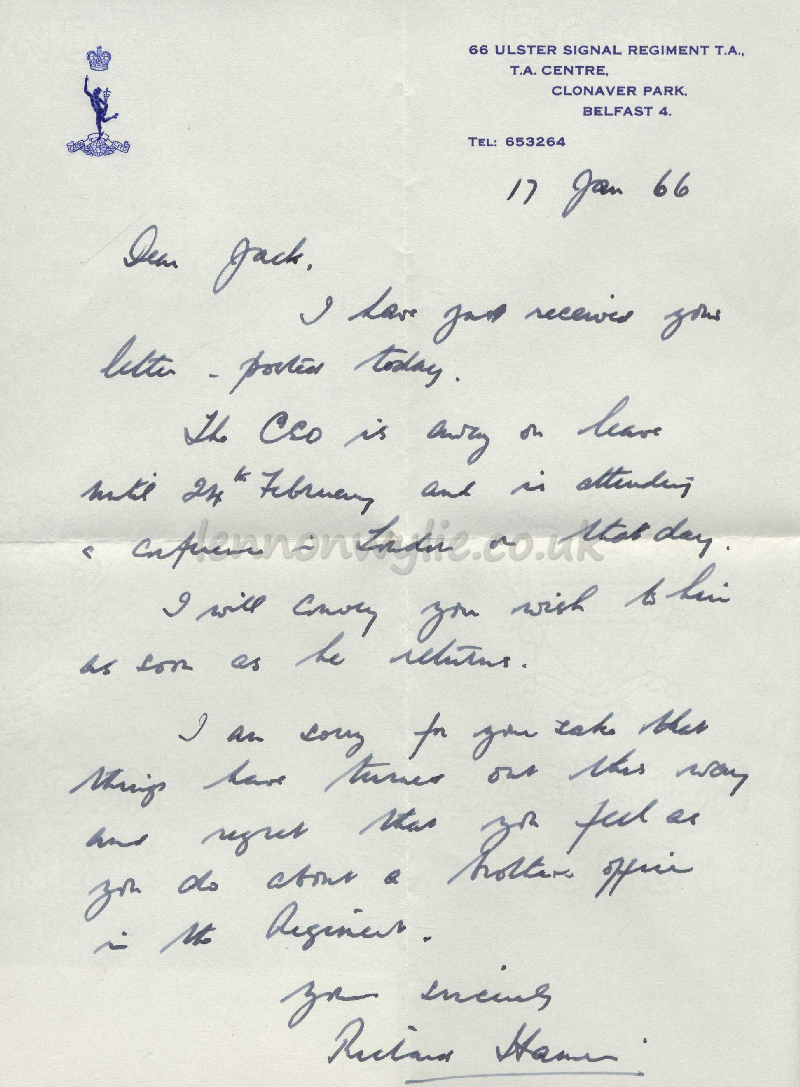 66 ULSTER SIGNAL REGIMENT T.A.,
T.A. CENTRE,
CLONAVER PARK,
BELFAST 4.
TEL: 653264
17 Jan 66
Dear Jack,
I have just received your
letter - posted today.
The CSO is away on leave
until 24th February and is attending
a conference in London on that day.
lennonwylie.co.uk
I will convey your wish to him
as soon as he returns.
I am sorry for your sake that
things have turned out this way
and regret that you feel as
you do about a brother officer
in the Regiment.
Yours sincerely
Richard